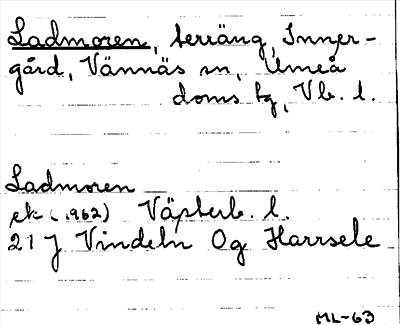 Ladmoren, terräng, Inner-
gård, Vännäs sn, Umeå
doms fg, Vb. l.
Ladmoren
ek (1962) Västerb. l.
21 J Vindeln Og Harrsele
ML-63